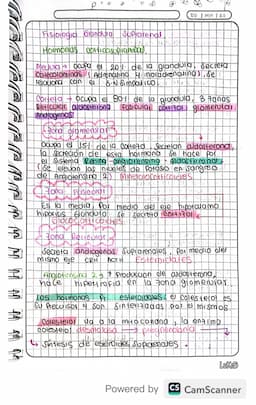 Fisiología Glándula Suprarenal.
Hormonas corticosuprarenal.
Médula → Ocupa el 20% de la glándula, secreta
Catecolaminas (Adrenalina y noradrenalina). Se
relaciona con el S.N. Simpático
Corteza → Ocupa el 80% de la glándula, 3 zonas
aldosterona cortisol
Androgenos
Zona glomerular
Ocupa el 15% de la corteza, Secretan aldosterona,
la secreción de esta hormona se hace por
el Sistema Renina angiotensina aldosterona.
(Se elevan los niveles de potasio en sangre
de Angiotensina 2) Mineralocorticoides
Es la media, por medio del eje hipotalamo
hipofisis glándula se secreta cortisol.
Glucocorticoides
Zona Reticular
Secreta androgenos Suprarrenales, por medio del
mismo eje Esteroides
Angiotensina 2 → Produccion de aldosterona,
hace hipertrofia en la zona glomerular.
Las hormonas esteroideas, el colesterol es
su Precursor y son Sintetizadas por
Colesterol va a la mitocondria, la enzima
colesterol desmolasa → pregnenolona
↳ Síntesis de esteroides Suprarrenales.
Powered by CS CamScanner